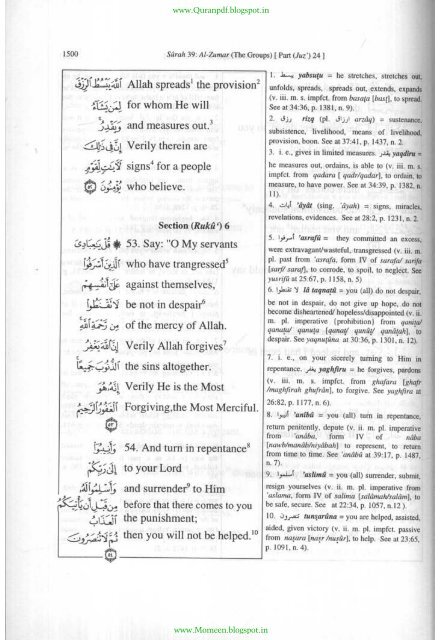 www.Quranpdf.blogspot.in
1500 Sûrah 39: Al-Zumar (The Groups) [ Part (Juz') 24 ]
ٱللَّهَ يَبْسُطُ ٱلرِّزْقَ Allah spreads¹ the provision²
لِمَن يَشَآءُ for whom He will
وَيَقْدِرُ and measures out.³
إِنَّ فِى ذَٰلِكَ Verily therein are
لَـَٔايَـٰتٍ لِّقَوْمٍ signs⁴ for a people
يُؤْمِنُونَ who believe.
Section (Rukû') 6
قُلْ يَـٰعِبَادِىَ 53. Say: "O My servants
ٱلَّذِينَ أَسْرَفُوا۟ who have trangressed⁵
عَلَىٰٓ أَنفُسِهِمْ against themselves,
لَا تَقْنَطُوا۟ be not in despair⁶
مِن رَّحْمَةِ ٱللَّهِ of the mercy of Allah.
إِنَّ ٱللَّهَ يَغْفِرُ Verily Allah forgives⁷
ٱلذُّنُوبَ جَمِيعًا the sins altogether.
إِنَّهُۥ هُوَ Verily He is the Most
ٱلْغَفُورُ ٱلرَّحِيمُ Forgiving,the Most Merciful.
٥٣
وَأَنِيبُوٓا۟ 54. And turn in repentance⁸
إِلَىٰ رَبِّكُمْ to your Lord
وَأَسْلِمُوا۟ لَهُۥ and surrender⁹ to Him
مِن قَبْلِ أَن يَأْتِيَكُمُ before that there comes to you
ٱلْعَذَابُ the punishment;
ثُمَّ لَا تُنصَرُونَ then you will not be helped.¹⁰
٥٤
1. يبسط yabsuṭu = he stretches, stretches out,
unfolds, spreads, spreads out, extends, expands
(v. iii. m. s. impfct. from basaṭa [basṭ], to spread.
See at 34:36, p. 1381, n. 9).
2. رزق rizq (pl. أرزاق arzâq) = sustenance,
subsistence, livelihood, means of livelihood,
provision, boon. See at 37:41, p. 1437, n. 2.
3. i. e., gives in limited measures. يقدر yaqdiru =
he measures out, ordains, is able to (v. iii. m. s.
impfct. from qadara [ qadr/qadar], to ordain, to
measure, to have power. See at 34:39, p. 1382, n.
11).
4. آيات 'âyât (sing. 'âyah) = signs, miracles,
revelations, evidences. See at 28:2, p. 1231, n. 2.
5. أسرفوا 'asrafû = they committed an excess,
were extravagant/wasteful, transgressed (v. iii. m.
pl. past from 'asrafa, form IV of sarafa/ sarifa
[sarf/ saraf], to corrode, to spoil, to neglect. See
yusrifû at 25:67, p. 1158, n. 5)
6. لا تقنطوا lâ taqnaṭû = you (all) do not despair,
be not in despair, do not give up hope, do not
become disheartened/ hopeless/disappointed (v. ii.
m. pl. imperative [prohibition] from qaniṭa/
qanaṭa/ qanuṭa [qanaṭ/ qunûṭ/ qanâṭah], to
despair. See yaqnuṭûna at 30:36, p. 1301, n. 12).
7. i. e., on your sicerely turning to Him in
repentance. يغفر yaghfiru = he forgives, pardons
(v. iii. m. s. impfct. from ghafara [ghafr
/maghfirah ghufrân], to forgive. See yaghfira at
26:82, p. 1177, n. 6).
8. أنيبوا 'anîbû = you (all) turn in repentance,
return penitently, depute (v. ii. m. pl. imperative
from 'anâba, form IV of nâba
[nawb/manâb/niyâbah] to represent, to return
from time to time. See 'anâbû at 39:17, p. 1487,
n. 7).
9. أسلموا 'aslimû = you (all) surrender, submit,
resign yourselves (v. ii. m. pl. imperative from
'aslama, form IV of salima [salâmah/salâm], to
be safe, secure. See at 22:34, p. 1057, n.12 ).
10. تنصرون tunṣarûna = you are helped, assisted,
aided, given victory (v. ii. m. pl. impfct. passive
from naṣara [naṣr /nuṣûr], to help. See at 23:65,
p. 1091, n. 4).
www.Momeen.blogspot.in